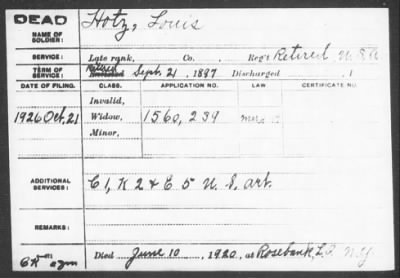 DEAD
NAME OF SOLDIER: Hotz, Louis
SERVICE: Late rank, Co. Reg't Retired U.S.A
TERM OF SERVICE: Retired Enlisted Sept. 21, 1897 Discharged , 1
DATE OF FILING. CLASS. APPLICATION NO. LAW CERTIFICATE NO.
Invalid,
1926 Oct. 21 Widow, 1560,239
Minor,
ADDITIONAL SERVICES: C 1, K 2 & E 5 U. S. art.
REMARKS:
Died June 10, 1920, at Rosebank, N.Y.